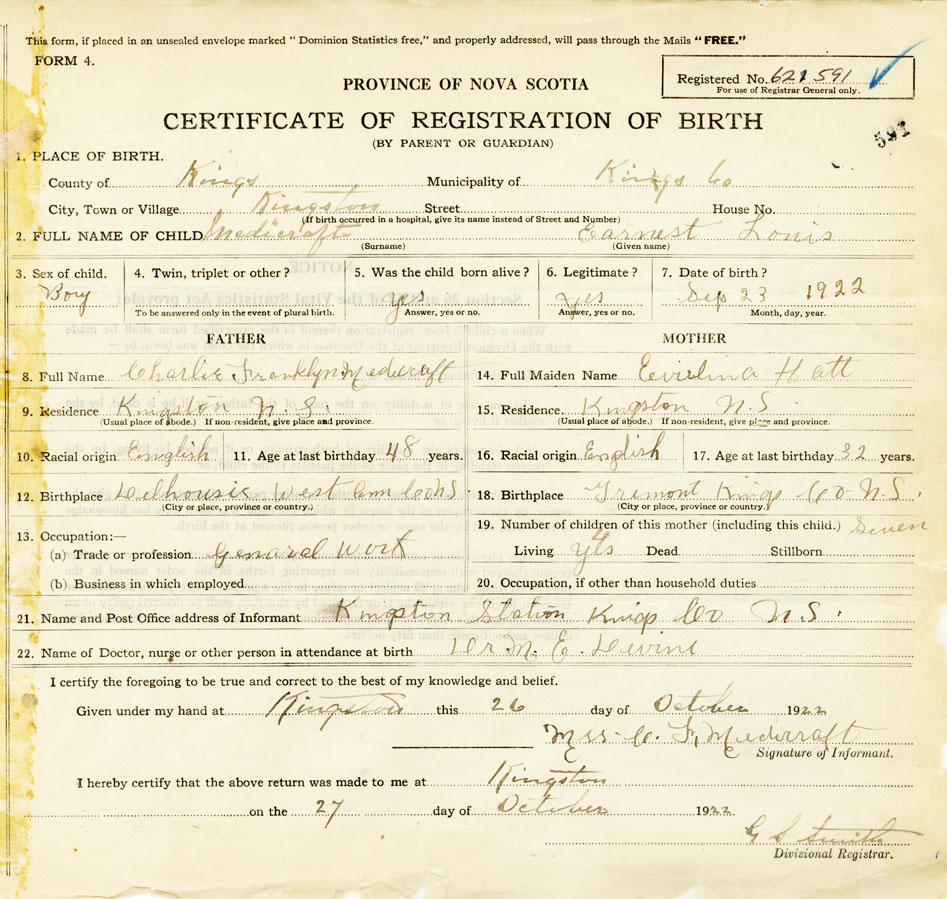 This form, if placed in an unsealed envelope marked "Dominion Statistics free," and properly addressed, will pass through the Mails "FREE."
FORM 4.
PROVINCE OF NOVA SCOTIA
Registered No. 621591
For use of Registrar General only.
CERTIFICATE OF REGISTRATION OF BIRTH
591
(BY PARENT OR GUARDIAN)
1. PLACE OF BIRTH.
County of Kings Municipality of Kings Co
City, Town or Village Kingston Street House No.
(If birth occurred in a hospital, give its name instead of Street and Number)
2. FULL NAME OF CHILD Medicraft Earnest Louis
(Surname) (Given name)
3. Sex of child. 4. Twin, triplet or other? 5. Was the child born alive? 6. Legitimate? 7. Date of birth?
Boy yes yes Sep 23 1922
To be answered only in the event of plural birth. Answer, yes or no. Answer, yes or no. Month, day, year.
FATHER MOTHER
8. Full Name Charlie Franklyn Medicraft 14. Full Maiden Name Evelina Hatt
9. Residence Kingston N.S. 15. Residence Kingston N.S
(Usual place of abode.) If non-resident, give place and province. (Usual place of abode.) If non-resident, give place and province.
10. Racial origin English 11. Age at last birthday 48 years. 16. Racial origin English 17. Age at last birthday 32 years.
12. Birthplace Delhousie West Ann Co N S 18. Birthplace Tremont Kings Co N.S.
(City or place, province or country.) (City or place, province or country.)
13. Occupation:— 19. Number of children of this mother (including this child.) Seven
(a) Trade or profession Genaral Work Living yes Dead Stillborn
(b) Business in which employed 20. Occupation, if other than household duties
21. Name and Post Office address of Informant Kingston Station Kings Co N.S.
22. Name of Doctor, nurse or other person in attendance at birth Dr M. E. Devine
I certify the foregoing to be true and correct to the best of my knowledge and belief.
Given under my hand at Kingston this 26 day of October 1922
Mrs C. F. Medicraft
Signature of Informant.
I hereby certify that the above return was made to me at Kingston
on the 27 day of October 1922
G S Smith
Divisional Registrar.